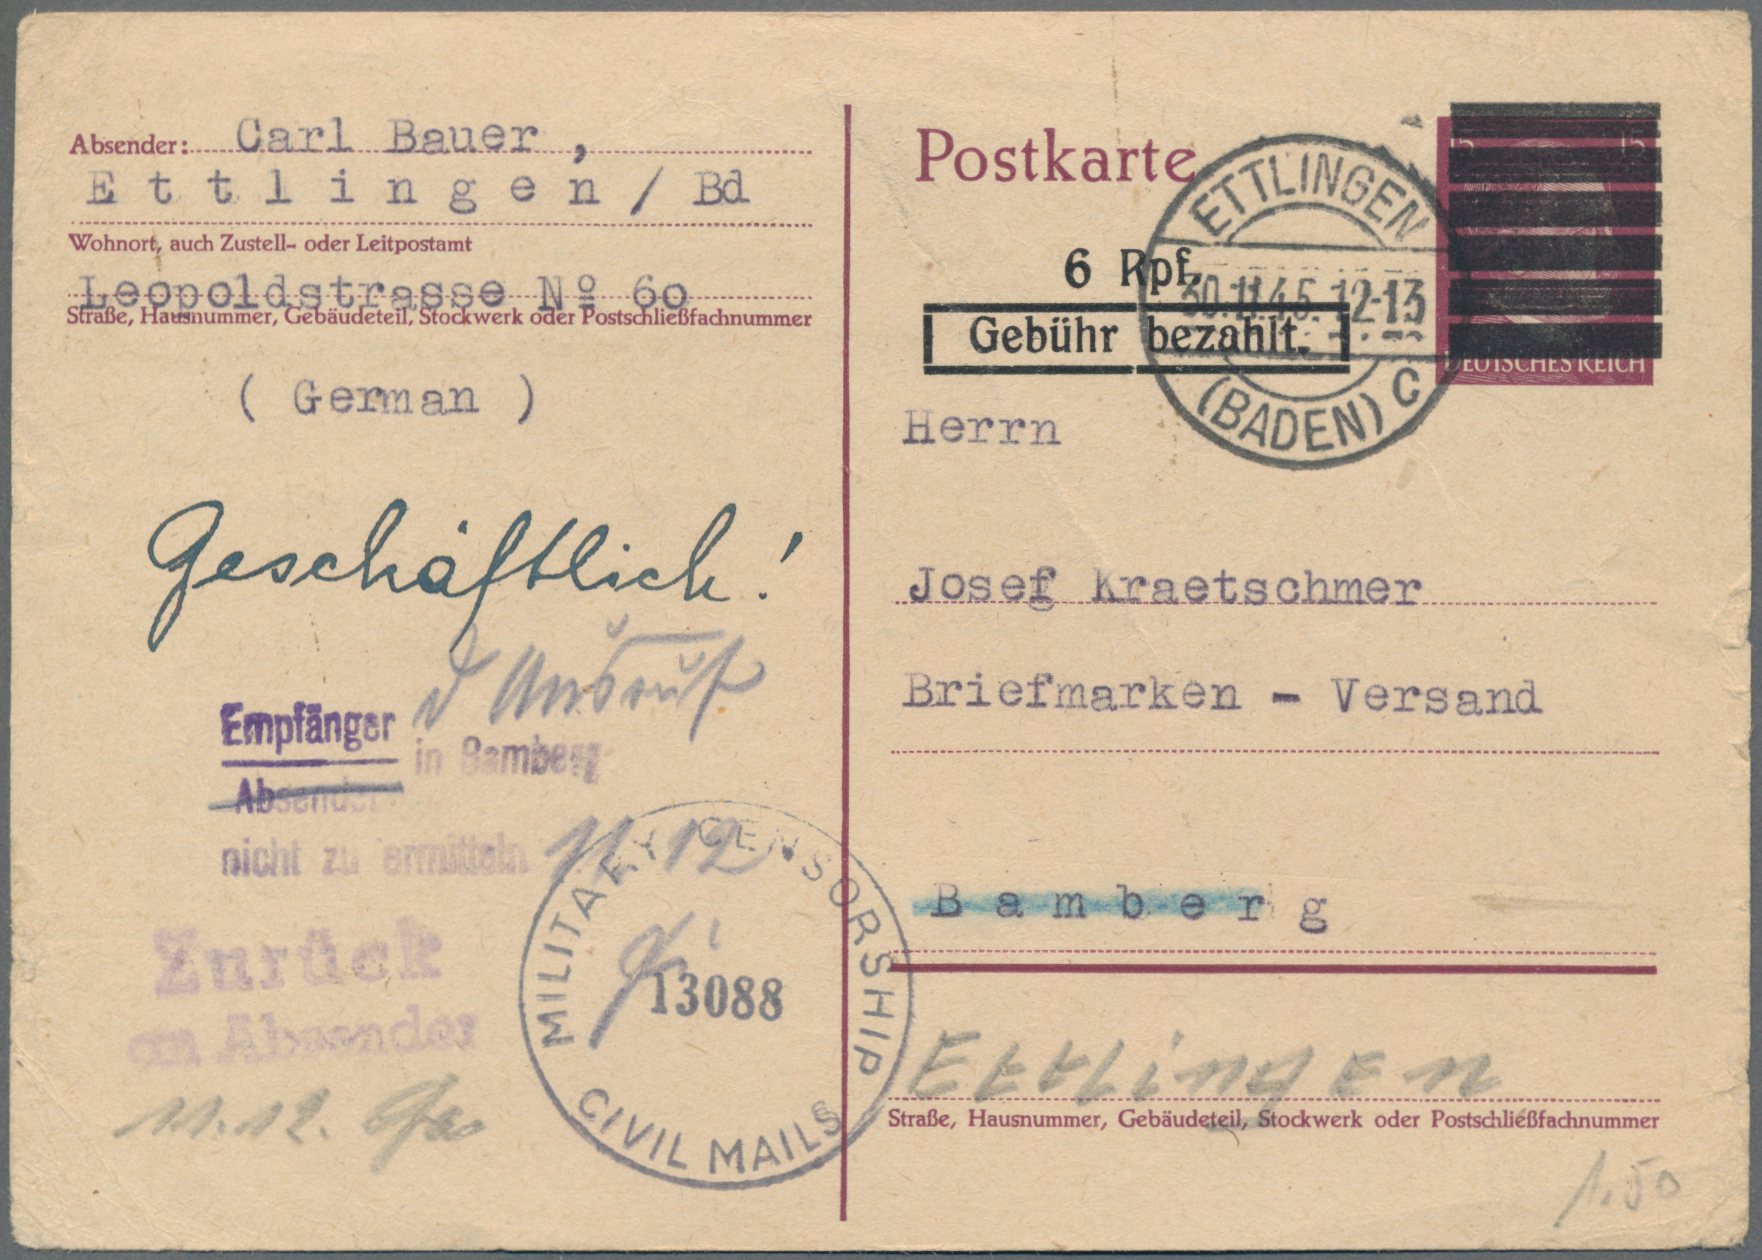 Absender: Carl Bauer ,
Ettlingen / Bd
Wohnort, auch Zustell- oder Leitpostamt
Leopoldstrasse Nº 60
Straße, Hausnummer, Gebäudeteil, Stockwerk oder Postschließfachnummer
( German )
Geschäftlich!
Empfänger
in Bamberg
Absender
nicht zu ermitteln 11.12
Zurück
an Absender
11.12.
MILITARY CENSORSHIP
13088
CIVIL MAILS
Postkarte
15 15
DEUTSCHES REICH
ETTLINGEN
30.11.45. 12-13
(BADEN) C
6 Rpf.
Gebühr bezahlt.
Herrn
Josef Kraetschmer
Briefmarken - Versand
Bamberg
Ettlingen
Straße, Hausnummer, Gebäudeteil, Stockwerk oder Postschließfachnummer
1.50